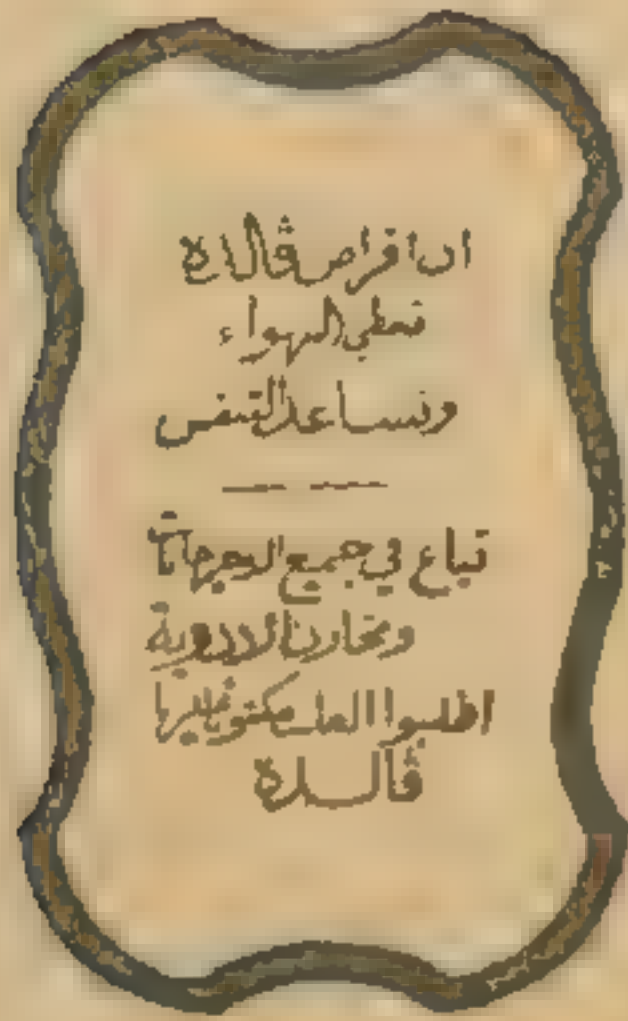 ان اقراص ڤالدة
تعطي الهواء
وتساعد التنفس
تباع في جميع الاجزخانات
ومخازن الادوية
اطلبوا العلب مكتوب عليها
ڤالدة